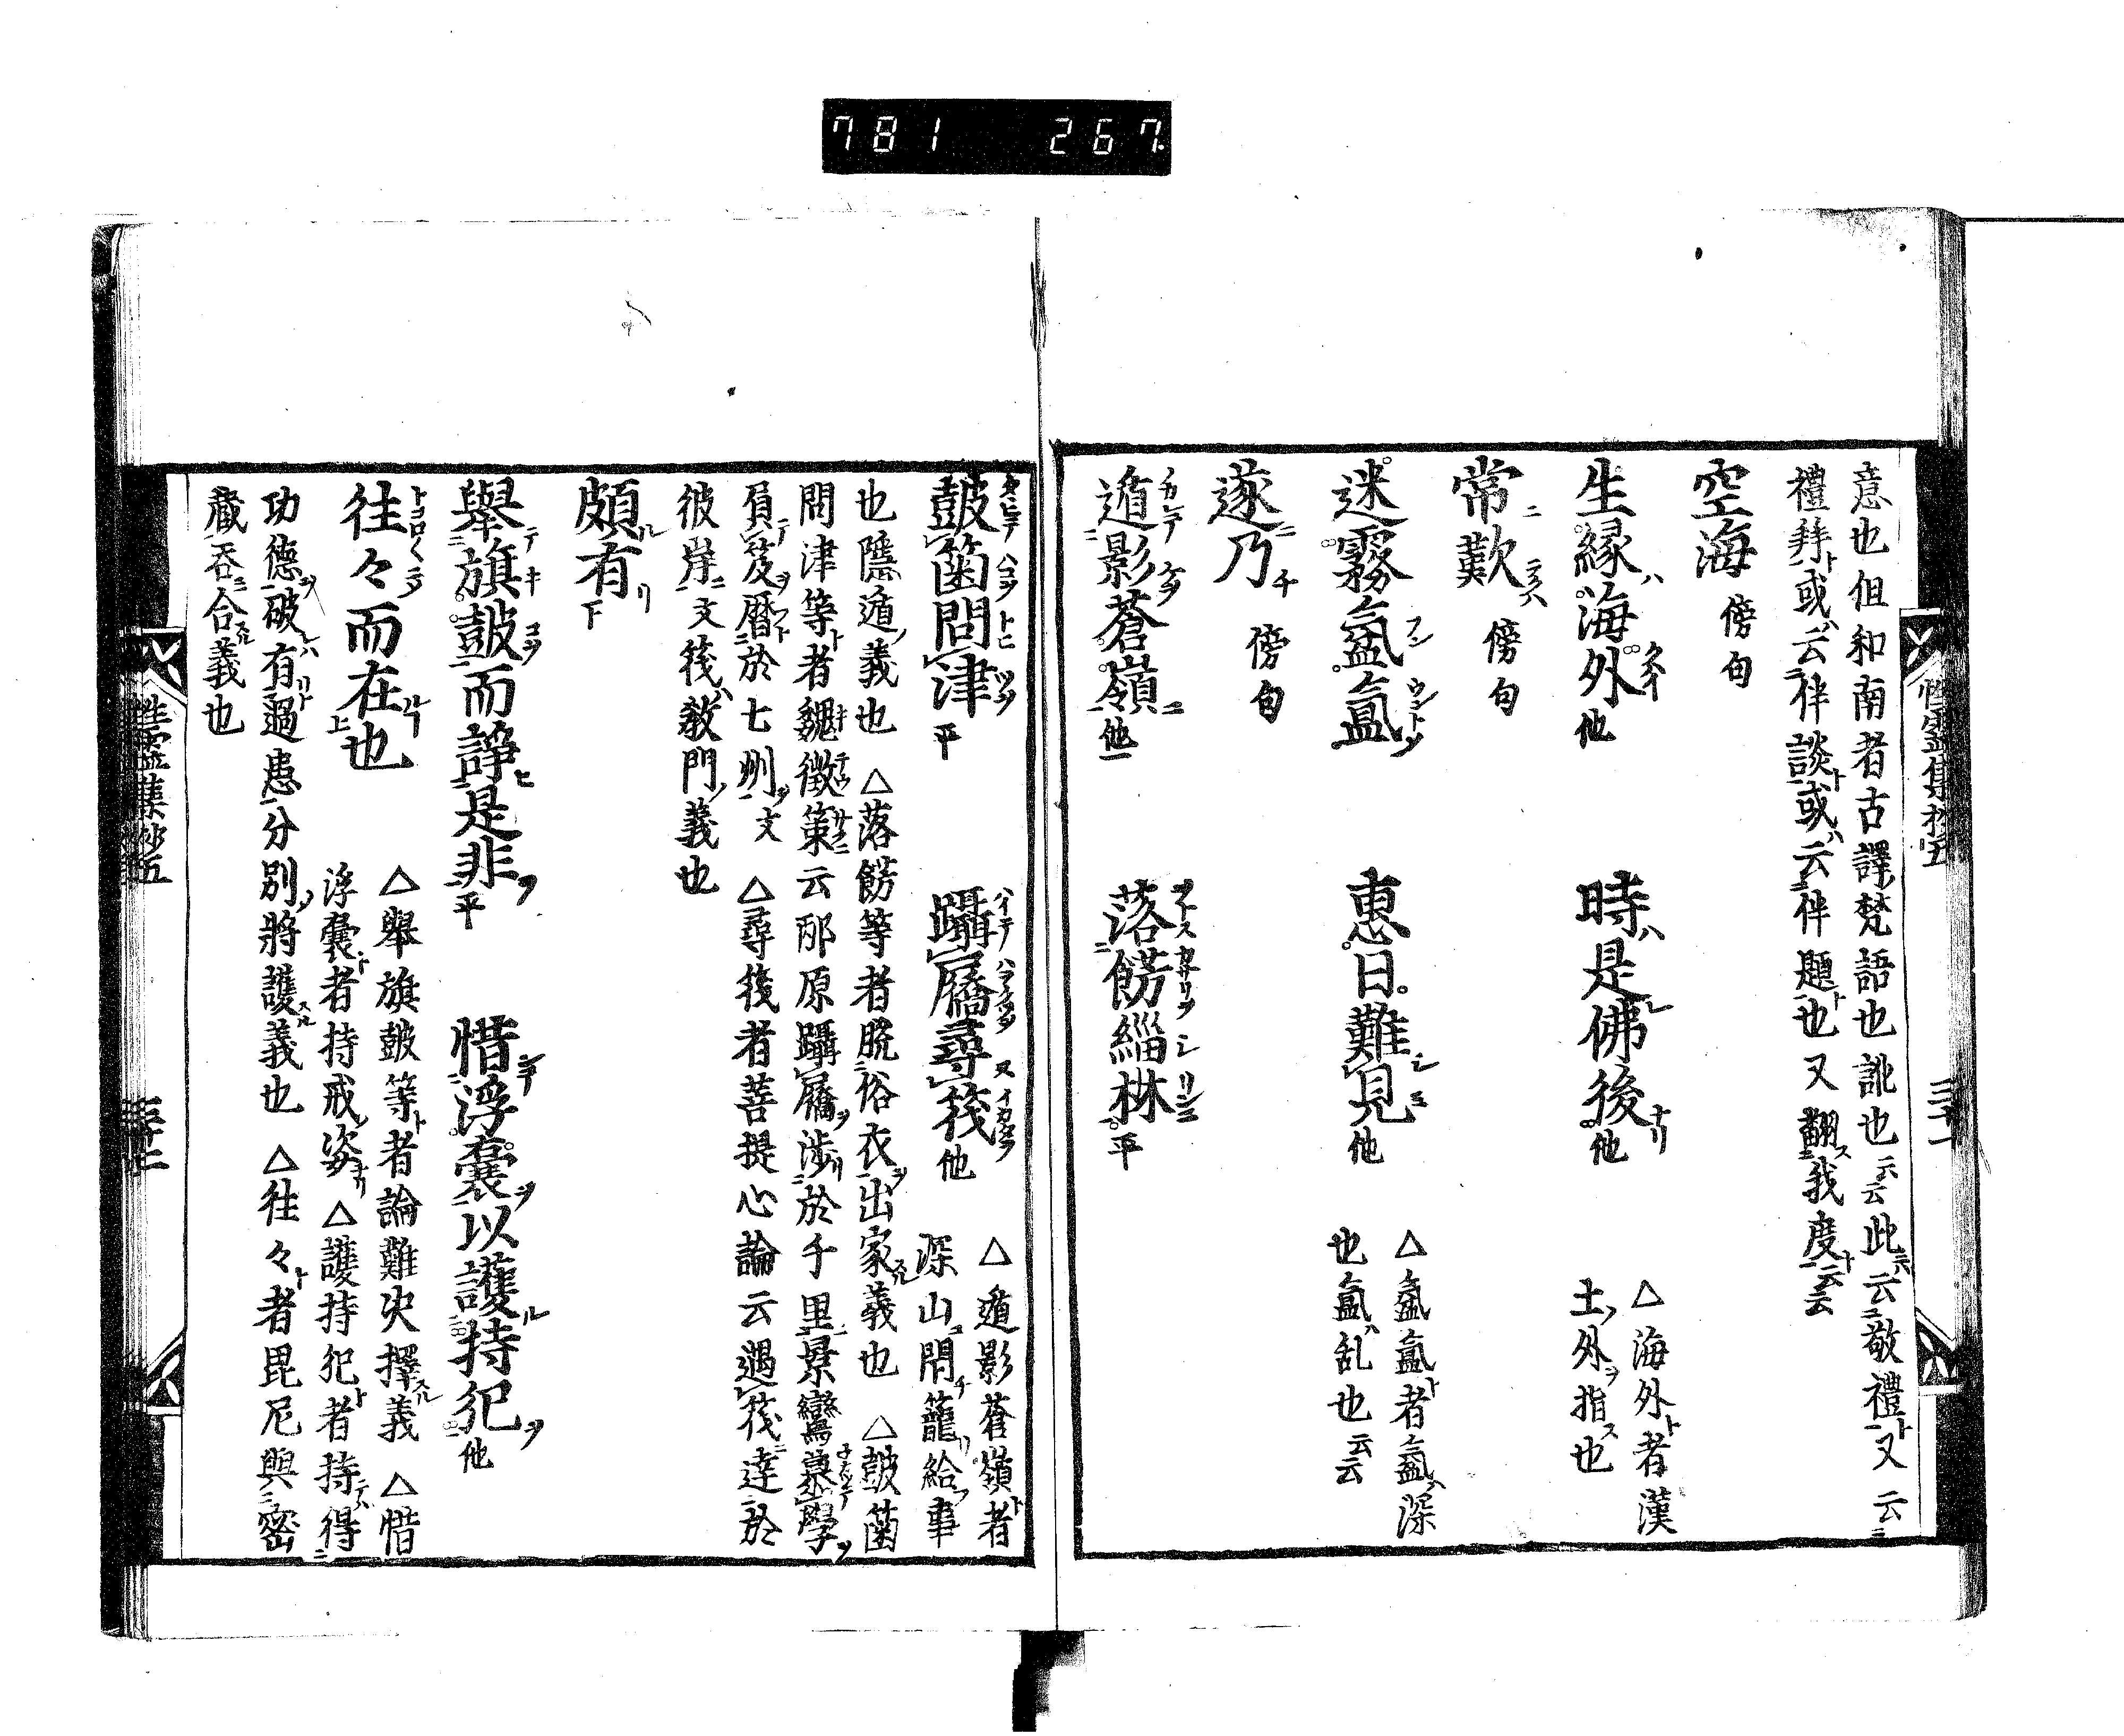 781 267.
意也但和南者古譯梵語也訛也云云此云敬禮又云
禮拜或云伴談或云伴題也又翻我度云云
空海 傍句
生縁海外他 時是佛後他 △海外者漢
土外指也
常歎 傍句
迷霧氳氳 惠日難見他
也氳乱也云云
遂乃 傍句
遁影蒼嶺他 落餝緇林平
皷篋問津平 躡屩尋筏他 △遁影蒼嶺者
深山閇籠給事
也隱遁義也 △落餝等者脱俗衣出家義也 △皷篋
問津等者魏徵策云邴原躡屩涉於千里景鸞慕學
負笈曆於七州文 △尋筏者菩提心論云遇筏達於
彼岸文筏教門義也
頗有下
舉旗皷而諍是非平 惜浮囊以護持犯他
往々而在也上 △舉旗皷等者論難决擇義 △惜
浮囊者持戒姿 △護持犯者持得
功德破有過患分別將護義也 △往々者毘尼與密
藏吞合義也
性靈集鈔五